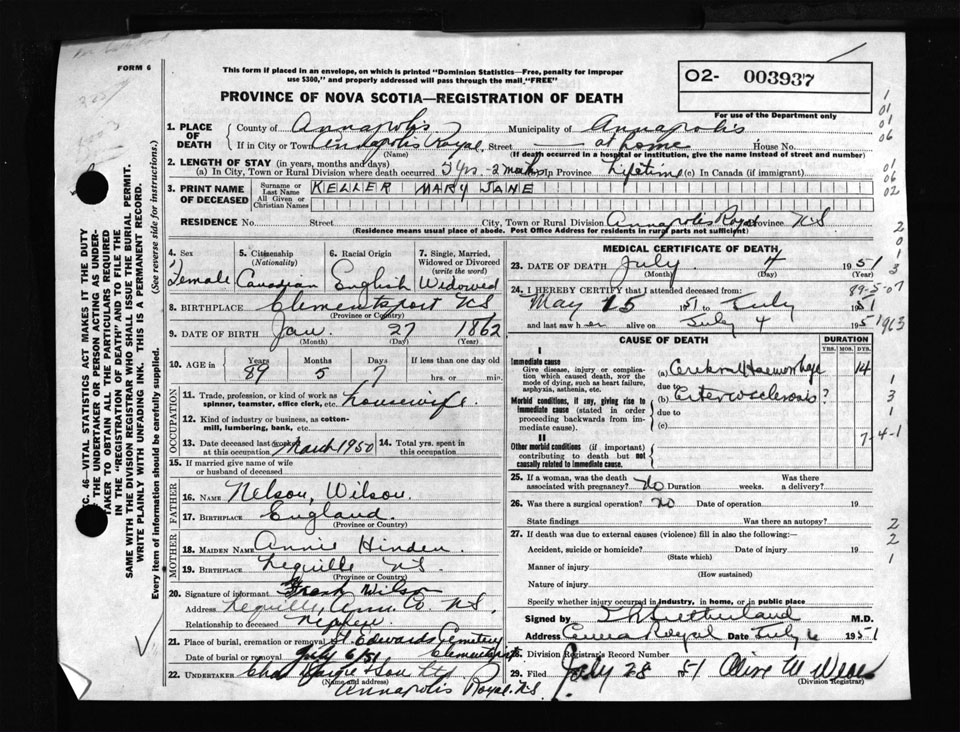 FORM 6
This form if placed in an envelope, on which is printed "Dominion Statistics—Free, penalty for improper
use $300," and properly addressed will pass through the mail "FREE"
O2- 003937
For use of the Department only
PROVINCE OF NOVA SCOTIA—REGISTRATION OF DEATH
1. PLACE OF DEATH County of Annapolis Municipality of Annapolis
If in City or Town Annapolis Royal Street — at home House No.
(Name) (If death occurred in a hospital or institution, give the name instead of street and number)
2. LENGTH OF STAY (in years, months and days)
(a) In City, Town or Rural Division where death occurred 5 yrs - 2 months In Province Lifetime (c) In Canada (if immigrant)
3. PRINT NAME OF DECEASED Surname or Last Name KELLER MARY JANE
All Given or Christian Names
RESIDENCE No. Street City, Town or Rural Division Annapolis Royal Province N.S
(Residence means usual place of abode. Post Office Address for residents in rural parts not sufficient)
4. Sex 5. Citizenship (Nationality) 6. Racial Origin 7. Single, Married, Widowed or Divorced (write the word)
Female Canadian English Widowed
8. BIRTHPLACE Clementsport N.S
(Province or Country)
9. DATE OF BIRTH Jan. 27 1862
(Month) (Day) (Year)
10. AGE in Years Months Days If less than one day old
89 5 7 hrs. or min.
OCCUPATION
11. Trade, profession, or kind of work as spinner, teamster, office clerk, etc. housewife
12. Kind of industry or business, as cotton-mill, lumbering, bank, etc.
13. Date deceased last worked at this occupation March 1950 14. Total yrs. spent in this occupation
15. If married give name of wife or husband of deceased
FATHER
16. NAME Nelson, Wilson.
17. BIRTHPLACE England.
(Province or Country)
MOTHER
18. MAIDEN NAME Annie Hinden.
19. BIRTHPLACE Lequille N.S
(Province or Country)
20. Signature of informant Frank Wilson
Address Lequille, Ann. Co. N.S.
Relationship to deceased Nephew
21. Place of burial, cremation or removal St. Edwards Cemetery
Date of burial or removal July 6/51 Clementsport
22. UNDERTAKER Chas & Son Ltd
(Name and address) Annapolis Royal. N.S.
MEDICAL CERTIFICATE OF DEATH
23. DATE OF DEATH July 4 1951
(Month) (Day) (Year)
24. I HEREBY CERTIFY that I attended deceased from:
May 15 1951 to July 1951
and last saw her alive on July 4 1951
CAUSE OF DEATH DURATION
YRS. MOS. DYS.
I
Immediate cause
Give disease, injury or complication which caused death, not the mode of dying, such as heart failure, asphyxia, asthenia, etc.
(a) Cerebral Haemorrhage 14
due to
Morbid conditions, if any, giving rise to immediate cause (stated in order proceeding backwards from immediate cause).
(b) Arteriosclerosis ?
due to
(c)
II
Other morbid conditions (if important) contributing to death but not causally related to immediate cause.
25. If a woman, was the death associated with pregnancy? No Duration weeks. Was there a delivery?
26. Was there a surgical operation? No Date of operation 19
State findings Was there an autopsy?
27. If death was due to external causes (violence) fill in also the following:—
Accident, suicide or homicide? Date of injury 19
(State which)
Manner of injury
(How sustained)
Nature of injury
Specify whether injury occurred in industry, in home, or in public place
Signed by Sutherland M.D.
Address Anna Royal Date July 6 1951
28. Division Registrar's Record Number
29. Filed July 28 1951
(Division Registrar)
SEC. 46—VITAL STATISTICS ACT MAKES IT THE DUTY
OF THE UNDERTAKER OR PERSON ACTING AS UNDERTAKER TO OBTAIN ALL THE PARTICULARS REQUIRED
IN THE "REGISTRATION OF DEATH" AND TO FILE THE
SAME WITH THE DIVISION REGISTRAR WHO SHALL ISSUE THE BURIAL PERMIT.
WRITE PLAINLY WITH UNFADING INK. THIS IS A PERMANENT RECORD.
Every item of information should be carefully supplied. (See reverse side for instructions.)
1
01
01
06
01
06
02
2
0
1
3
89-5-07
1963
1
3
1
7-4-1
2
2
1